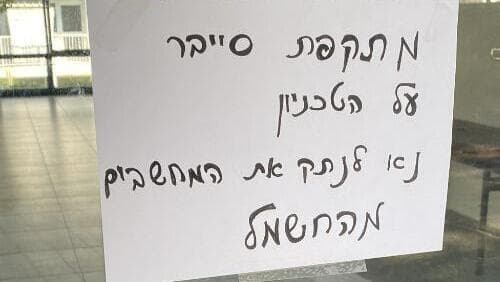 מתקפת סייבר
על הטכניון
נא לנתק את המחשבים
מהחשמל